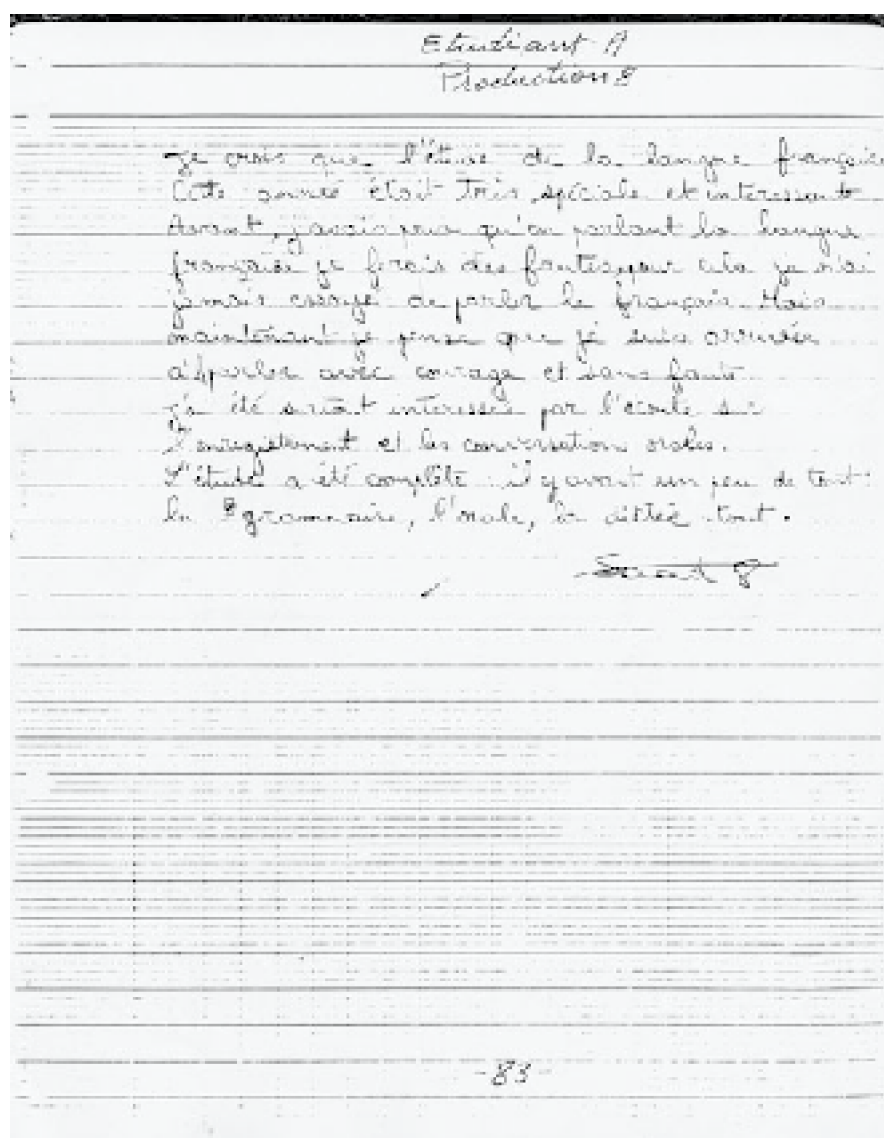 Etudiant A
Production 8
Je crois que l'étude de la langue française
Cette année était très spéciale et interessante
Avant, j'avais peur qu'en parlant la langue
française je ferais des fautes, pour cela je n'ai
jamais essayé de parler le français. Mais
maintenant je pense que je suis arrivée
à parler avec courage et sans faute
J'a été surtout interessée par l'écoute sur
l'enregistement et les conversation orales.
L'étude a été complète : il y avait un peu de tout:
la grammaire, l'orale, la dictée tout.
-83-